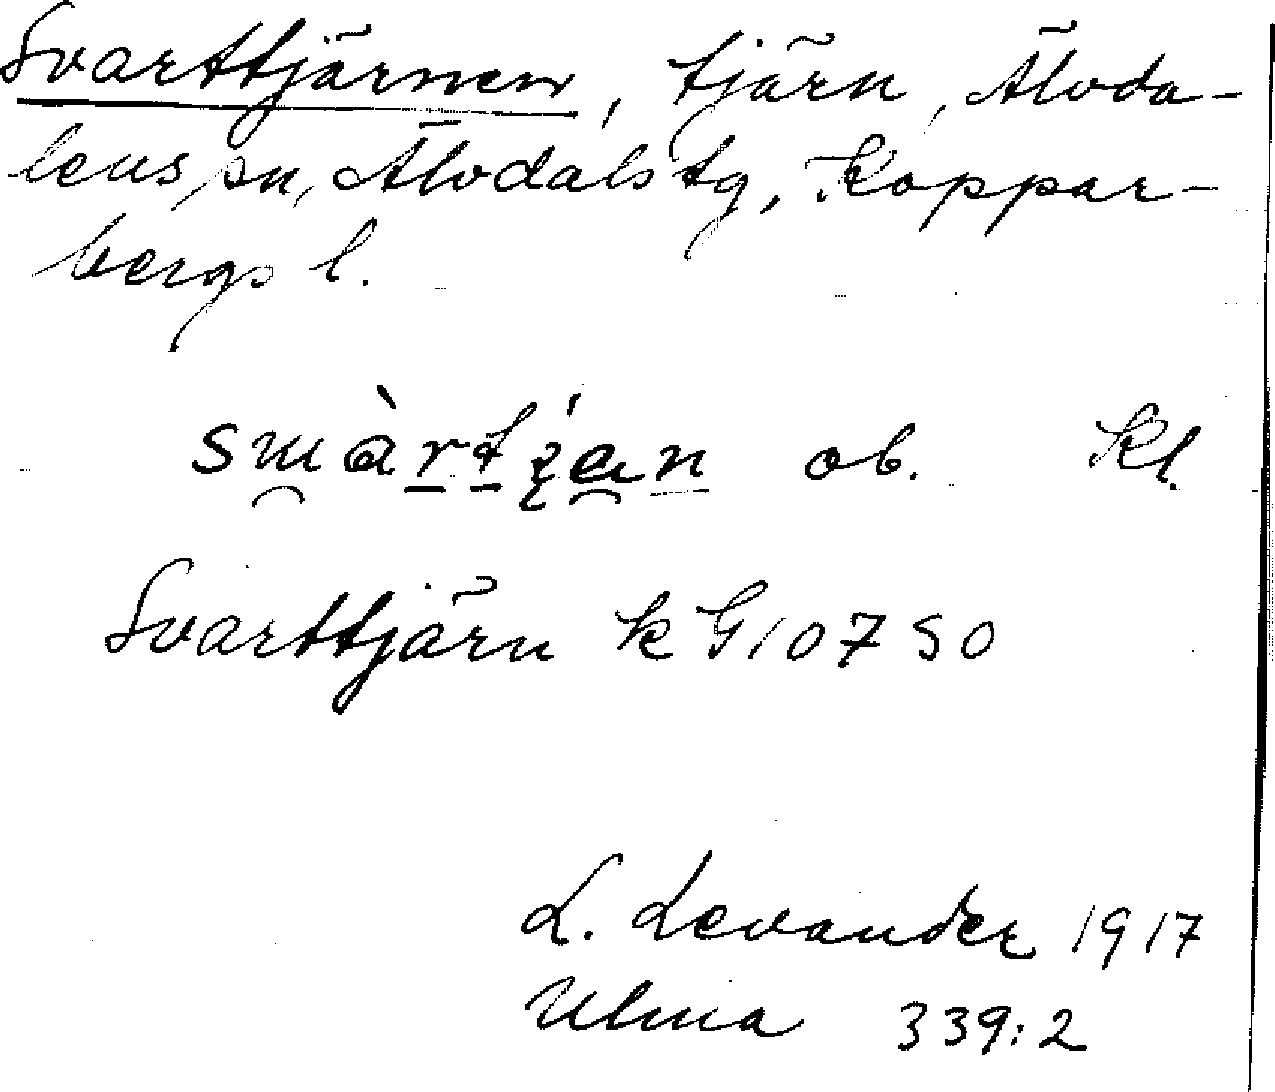 Svarttjärnen, tjärn, Älvda-
lens sn, Älvdals tg, Koppar-
bergs l.
ob. Kl.
Svarttjärn k G 10750
L. Levander 1917
Ulma 339:2